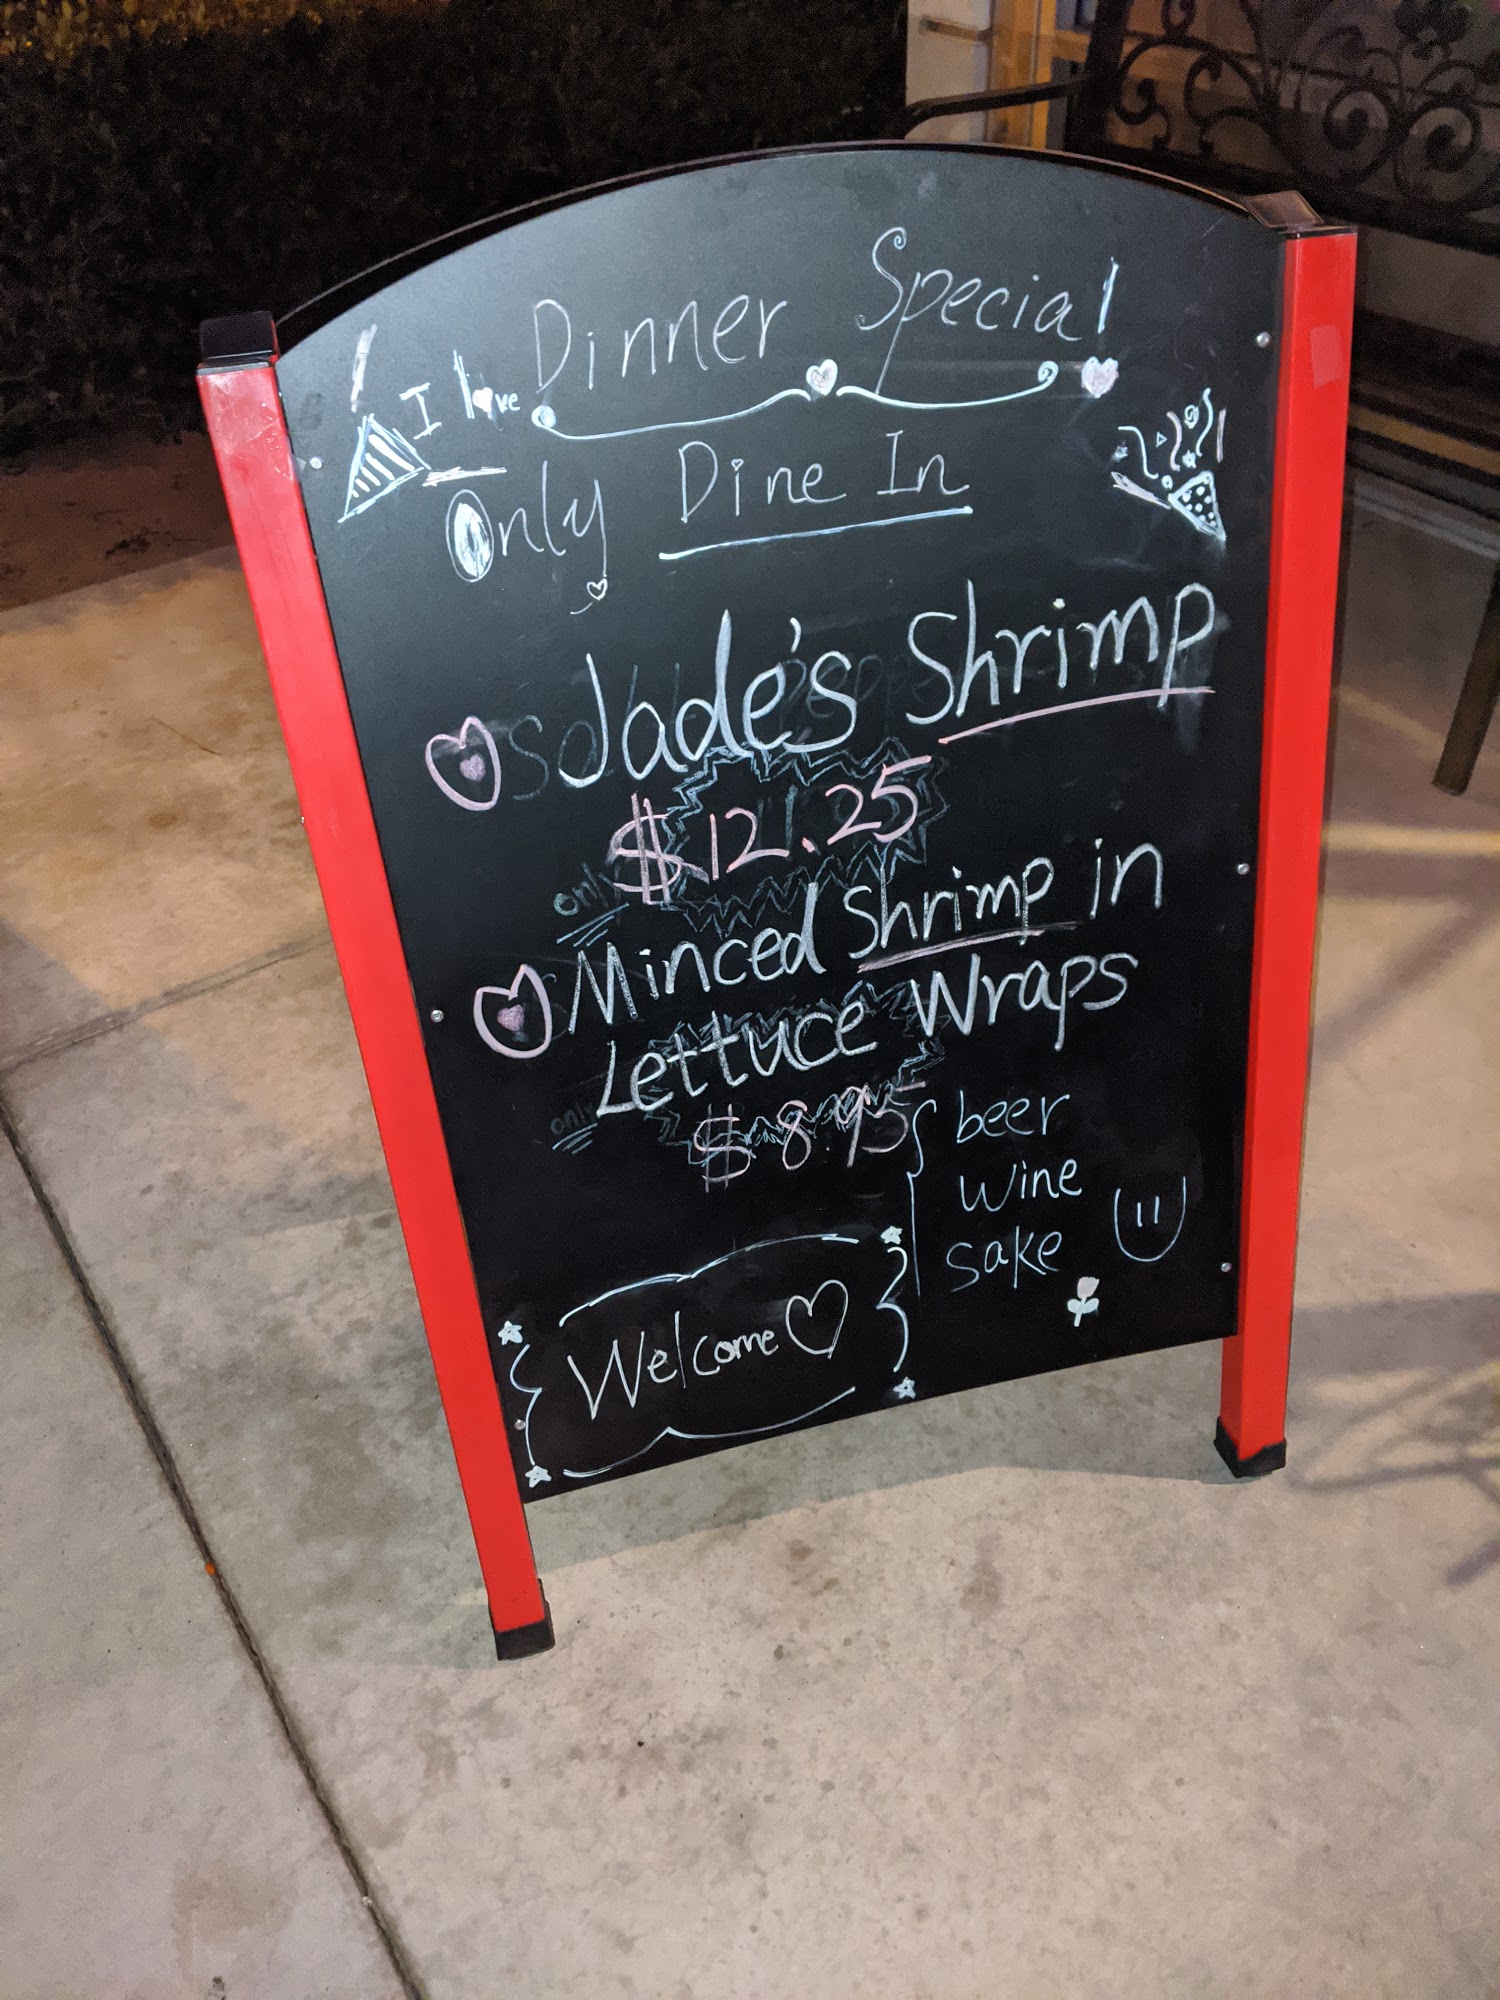 Dinner Special
I love
Only Dine In
Jade's Shrimp
$12.25
only
Minced Shrimp in
Lettuce Wraps
only
$8.95
beer
wine
sake
Welcome